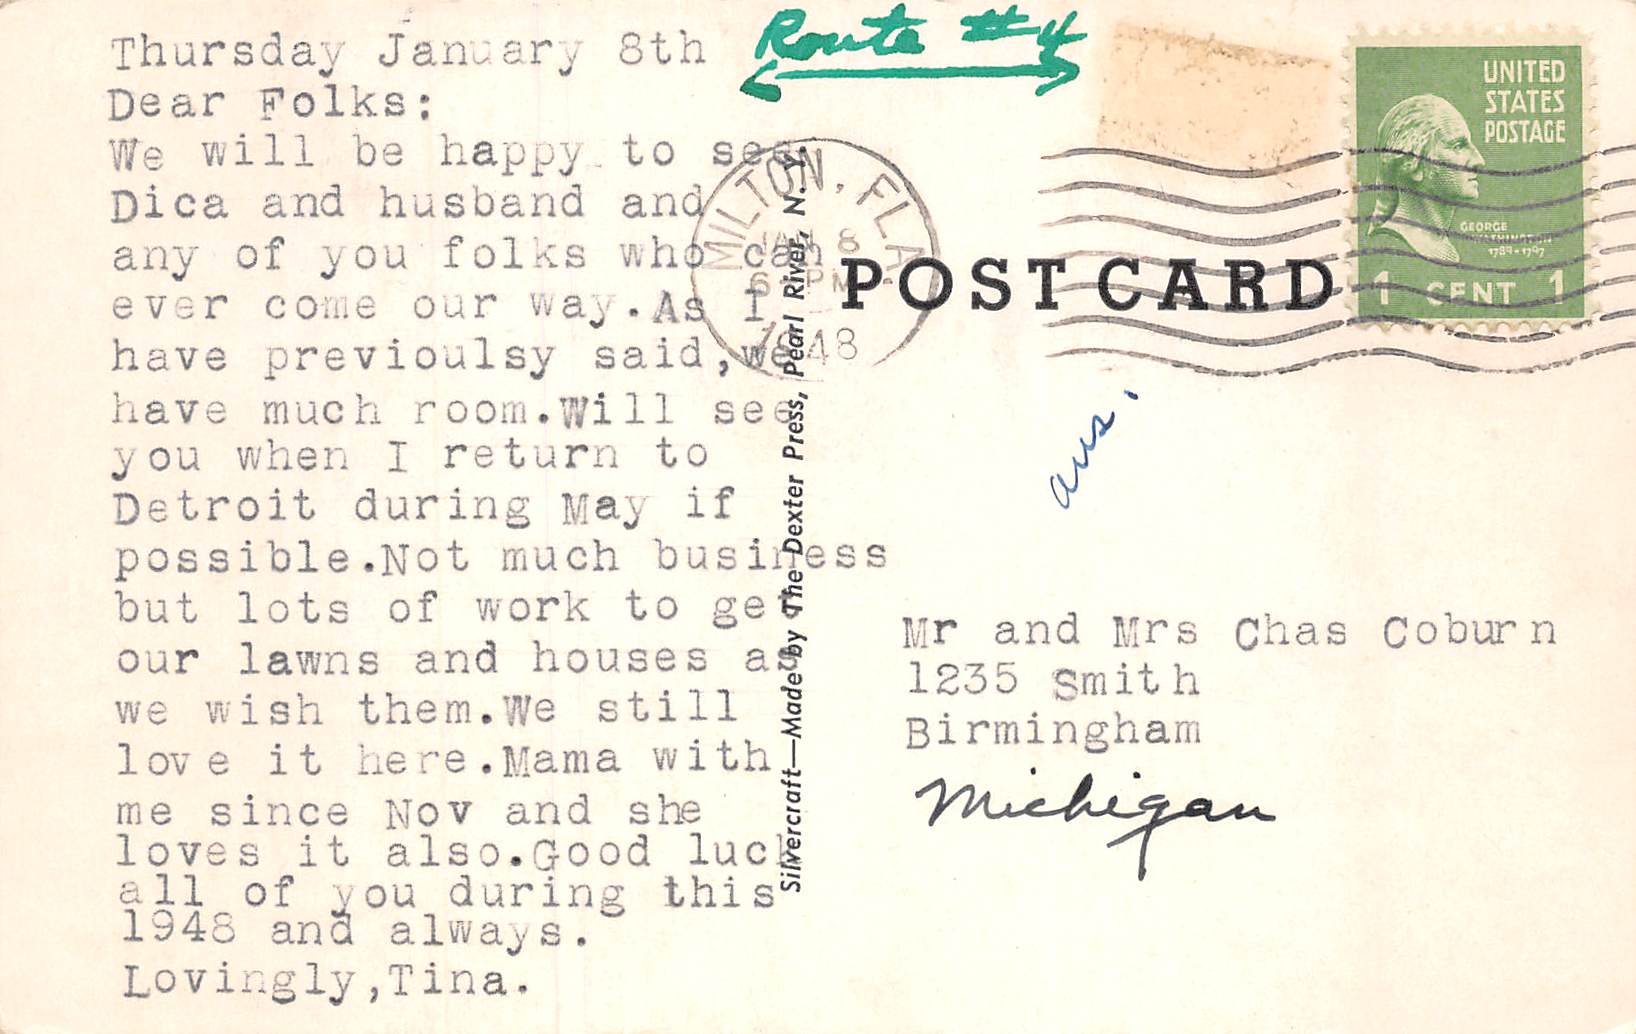 Thursday January 8th
Dear Folks:
We will be happy to see
Dica and husband and
any of you folks who can
ever come our way.As I
have previoulsy said,we
have much room.Will see
you when I return to
Detroit during May if
possible.Not much business
but lots of work to get
our lawns and houses as
we wish them.We still
love it here.Mama with
me since Nov and she
loves it also.Good luck
all of you during this
1948 and always.
Lovingly,Tina.
Route #4
MILTON, FLA.
JAN 8
6 PM
1948
Silvercraft—Made by The Dexter Press, Pearl River, N.Y.
POST CARD
UNITED
STATES
POSTAGE
GEORGE
WASHINGTON
1789-1797
1 CENT 1
ans.
Mr and Mrs Chas Coburn
1235 Smith
Birmingham
Michigan